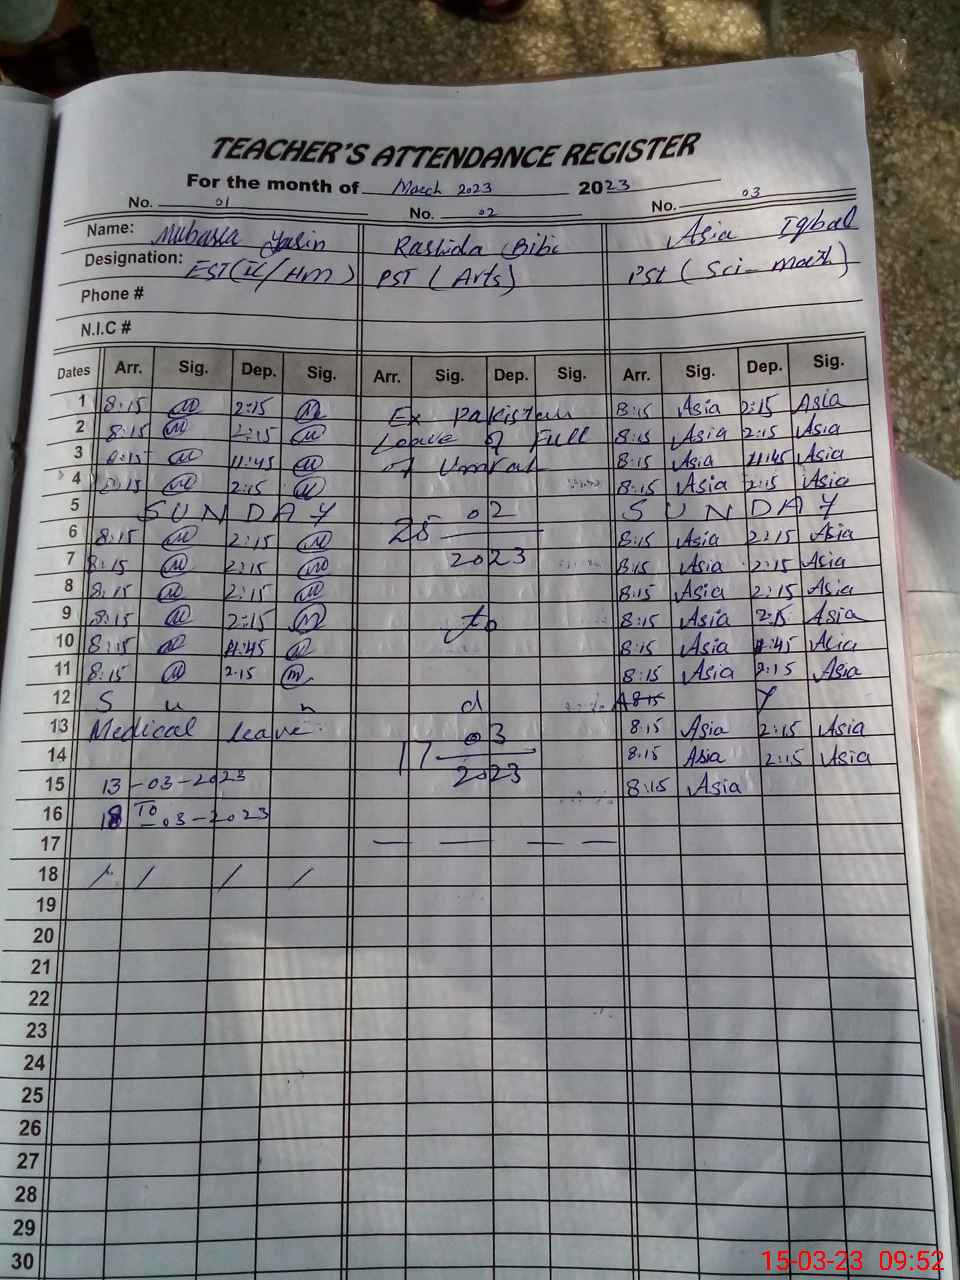 TEACHER'S ATTENDANCE REGISTER
For the month of March 2023 2023
No. 01 No. 02 No. 03
Name: Mubasra Yasin Rashida Bibi Asia Iqbal
Designation: EST(II/HM) PST (Arts) PST (Sci-math)
Phone #
N.I.C #
Dates Arr. Sig. Dep. Sig. Arr. Sig. Dep. Sig. Arr. Sig. Dep. Sig.
1 8:15 M 2:15 M Ex Pakistan 8:15 Asia 2:15 Asia
2 8:15 M 2:15 M Leave of Full 8:15 Asia 2:15 Asia
3 8:15 M 11:45 M of Umrah 8:15 Asia 11:45 Asia
4 8:15 M 2:15 M 8:15 Asia 2:15 Asia
5 S U N D A Y 02 S U N D A Y
6 8:15 M 2:15 M 25 8:15 Asia 2:15 Asia
7 8:15 M 2:15 M 2023 8:15 Asia 2:15 Asia
8 8:15 M 2:15 M 8:15 Asia 2:15 Asia
9 8:15 M 2:15 M to 8:15 Asia 2:15 Asia
10 8:15 M 11:45 M 8:15 Asia 11:45 Asia
11 8:15 M 2:15 M 8:15 Asia 2:15 Asia
12 S u n d A 8:15 Y
13 Medical leave 03 8:15 Asia 2:15 Asia
14 17 8:15 Asia 2:15 Asia
15 13-03-2023 2023 8:15 Asia
16 18 To -03-2023
17
18
19
20
21
22
23
24
25
26
27
28
29
30
15-03-23 09:52